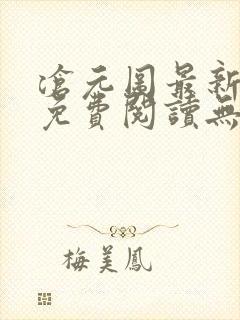 滄元圖最新
免費閱讀無
梅美鳳